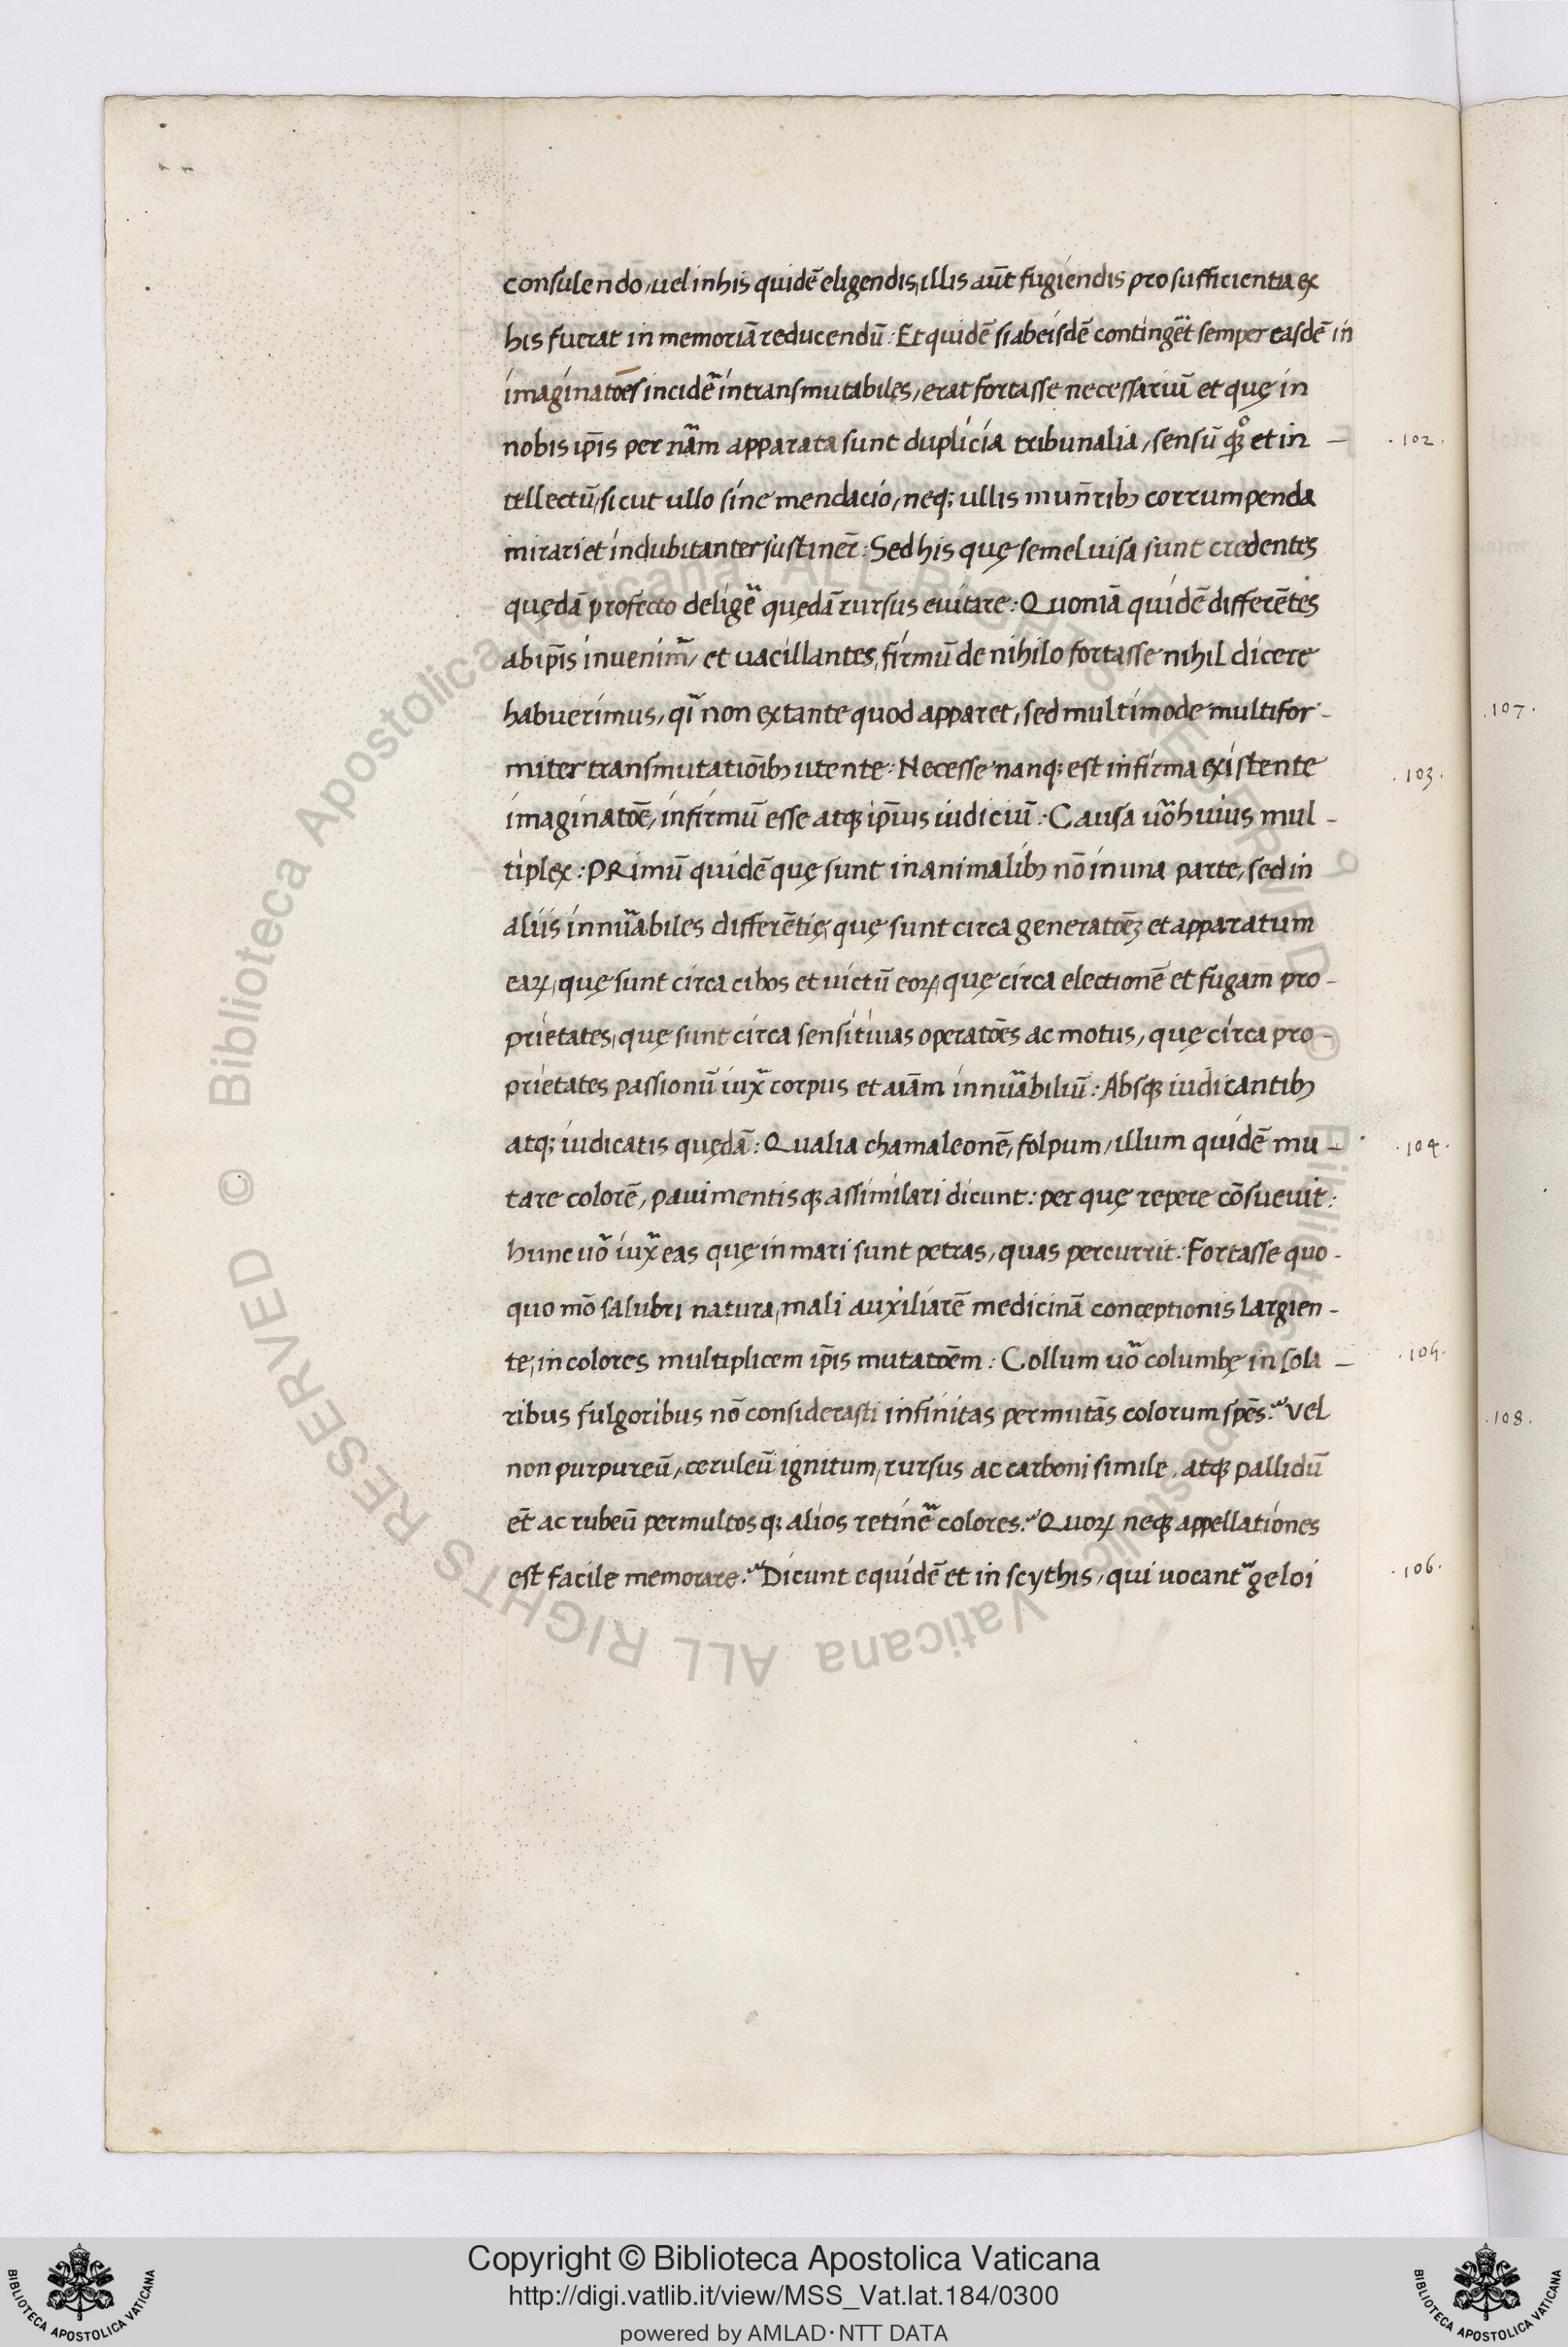 consulendo, uel in his quidē eligendis, illis aūt fugiendis pro sufficientia ex
his fuerat in memoriā reducendū : Et quidē si ab eisdē contingēt semper easdē in
imaginatōes incidēˀ intransmutabiles, erat fortasse necessariū et quę in
nobis ip̄is per nām apparata sunt duplicia tribunalia, sensū qꝫ et in – .102.
tellectū, sicut ullo sine mendacio, neqꝫ ullis mun̄ribꝫ corrumpenda
mirari et indubitanter sustiner̄ : Sed his quę semel uisa sunt credentes
quędā profecto deligēˀ quędā rursus euitare : Quoniā quidē differētes
ab ip̄is inuenim̄, et uacillantes, firmū de nihilo fortasse nihil dicere
habuerimus, qī non extante quod apparet, sed multimode multifor-
miter transmutatiōibꝫ utente : Necesse nanqꝫ est infirma existente .103.
imaginatōē, infirmū esse atqꝫ ip̄ius iudiciū : Causa uō huius mul-
tiplex : PRimū quidē quę sunt in animalibꝫ nō in una parte, sed in
aliis innūabiles differētię, quę sunt circa generatōēꝫ et apparatum
eaꝝ, quę sunt circa cibos et uictū eoꝝ, quę circa electionē et fugam pro-
prietates, quę sunt circa sensitiuas operatōēs ac motus, quę circa pro-
prietates passionū iux̄ corpus et aīam innūabiliū : Absqꝫ iudicantibꝫ
atqꝫ iudicatis quędā : Qualia chamaleonē, folpum, illum quidē mu- .104.
tare colorē, pauimentisqꝫ assimilari dicunt : per quę repere cōsueuit :
hunc uō iux̄ eas quę in mari sunt petras, quas percurrit : Fortasse quo-
quo mō salubri natura, mali auxiliarē medicinā conceptionis largien-
te, in colores multiplicem ip̄is mutatōēm : Collum uō columbę in sola – .105.
ribus fulgoribus nō considerasti infinitas permutās colorum spēs : Vel
non purpureū, ceruleū ignitum, rursus ac carboni simile, atqꝫ pallidū
et̄ ac rubeū permultosqꝫ alios retinēˀ colores : Quoꝝ neqꝫ appellationes
est facile memorare : Dicunt equidē et in scythis, qui uocantˀ geloi .106.
.107.
.108.
Copyright © Biblioteca Apostolica Vaticana
http://digi.vatlib.it/view/MSS_Vat.lat.184/0300
powered by AMLAD·NTT DATA
BIBLIOTECA APOSTOLICA VATICANA
BIBLIOTECA APOSTOLICA VATICANA
© Biblioteca Apostolica Vaticana ALL RIGHTS RESERVED © Biblioteca Apostolica Vaticana ALL RIGHTS RESERVED